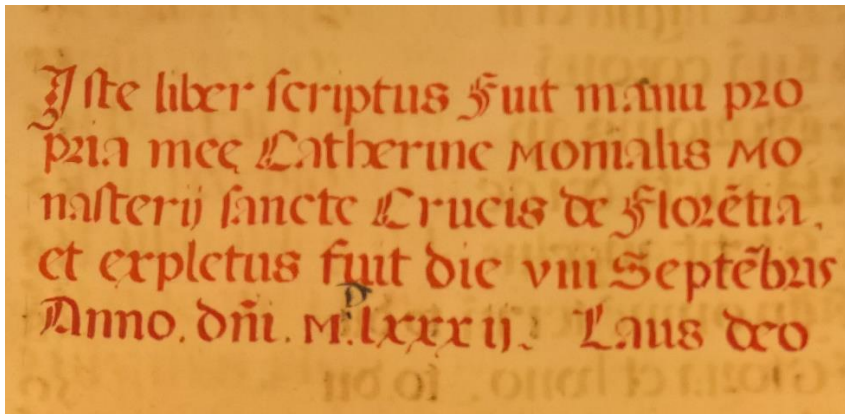 Iste liber scriptus fuit manu pro
pria meę Catherine monialis mo
nasterij sancte Crucis de Florẽtia.
et expletus fuit die viii Septẽbris
Anno. dñi. M.D.lxxxij. Laus deo